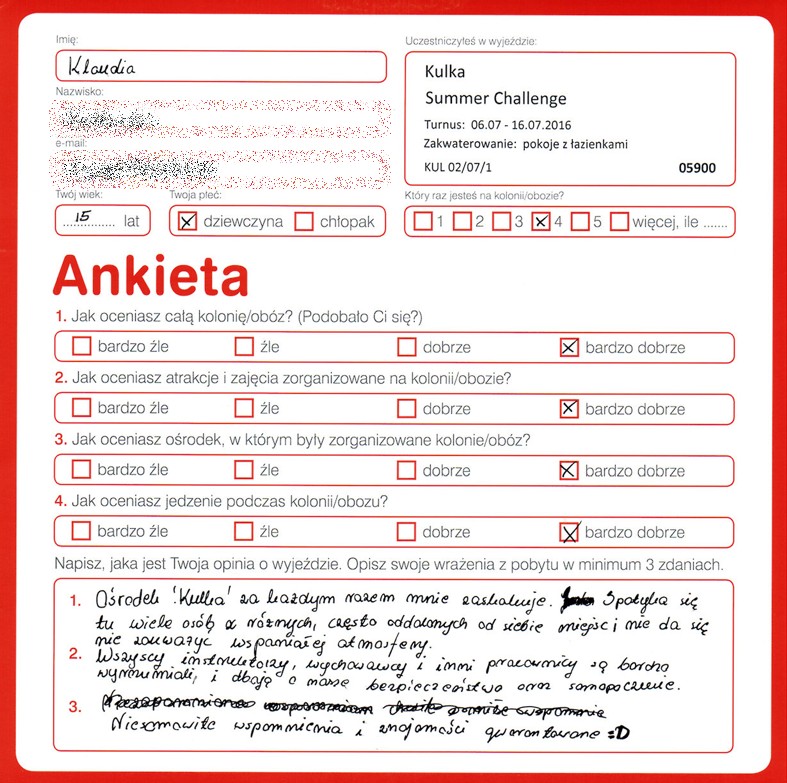 Imię:
Klaudia
Nazwisko:
e-mail:
Twój wiek:
15 lat
Twoja płeć:
dziewczyna chłopak
Uczestniczyłeś w wyjeździe:
Kulka
Summer Challenge
Turnus: 06.07 - 16.07.2016
Zakwaterowanie: pokoje z łazienkami
KUL 02/07/1 05900
Który raz jesteś na kolonii/obozie?
1 2 3 4 5 więcej, ile .......
Ankieta
1. Jak oceniasz całą kolonię/obóz? (Podobało Ci się?)
bardzo źle źle dobrze bardzo dobrze
2. Jak oceniasz atrakcje i zajęcia zorganizowane na kolonii/obozie?
bardzo źle źle dobrze bardzo dobrze
3. Jak oceniasz ośrodek, w którym były zorganizowane kolonie/obóz?
bardzo źle źle dobrze bardzo dobrze
4. Jak oceniasz jedzenie podczas kolonii/obozu?
bardzo źle źle dobrze bardzo dobrze
Napisz, jaka jest Twoja opinia o wyjeździe. Opisz swoje wrażenia z pobytu w minimum 3 zdaniach.
1. Ośrodek 'Kulka' za każdym razem mnie zaskakuje. Spotyka się
tu wiele osób z różnych, często oddalonych od siebie miejsc i nie da się
nie zauważyć wspaniałej atmosfery.
2. Wszyscy instruktorzy, wychowawcy i inni pracownicy są bardzo
wyrozumiali, i dbają o nasze bezpieczeństwo oraz samopoczucie.
3.
Niesamowite wspomnienia i znajomości gwarantowane =D